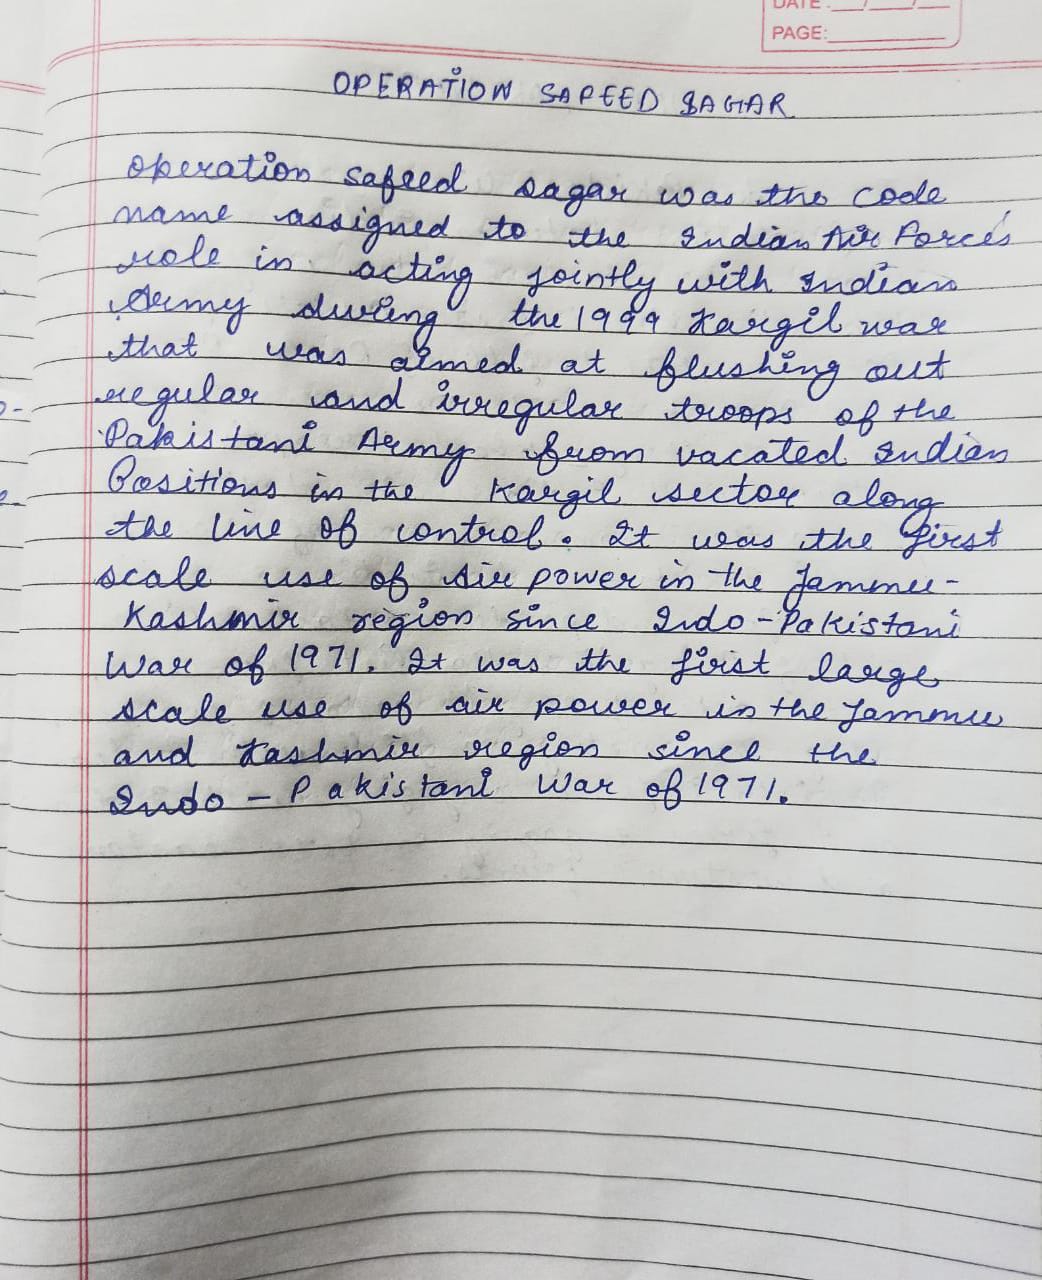 DATE: __/__/__
PAGE:
OPERATION SAFEED SAGAR
operation safeed sagar was the code
name assigned to the Indian Air Force's
role in acting jointly with Indian
Army during the 1999 Kargil war
that was aimed at flushing out
regular and irregular troops of the
Pakistani Army from vacated Indian
Positions in the Kargil sector along
the line of control. It was the first
scale use of Air power in the Jammu-
Kashmir region since Indo-Pakistani
War of 1971. It was the first large
scale use of air power in the Jammu
and Kashmir region since the
Indo - Pakistani War of 1971.